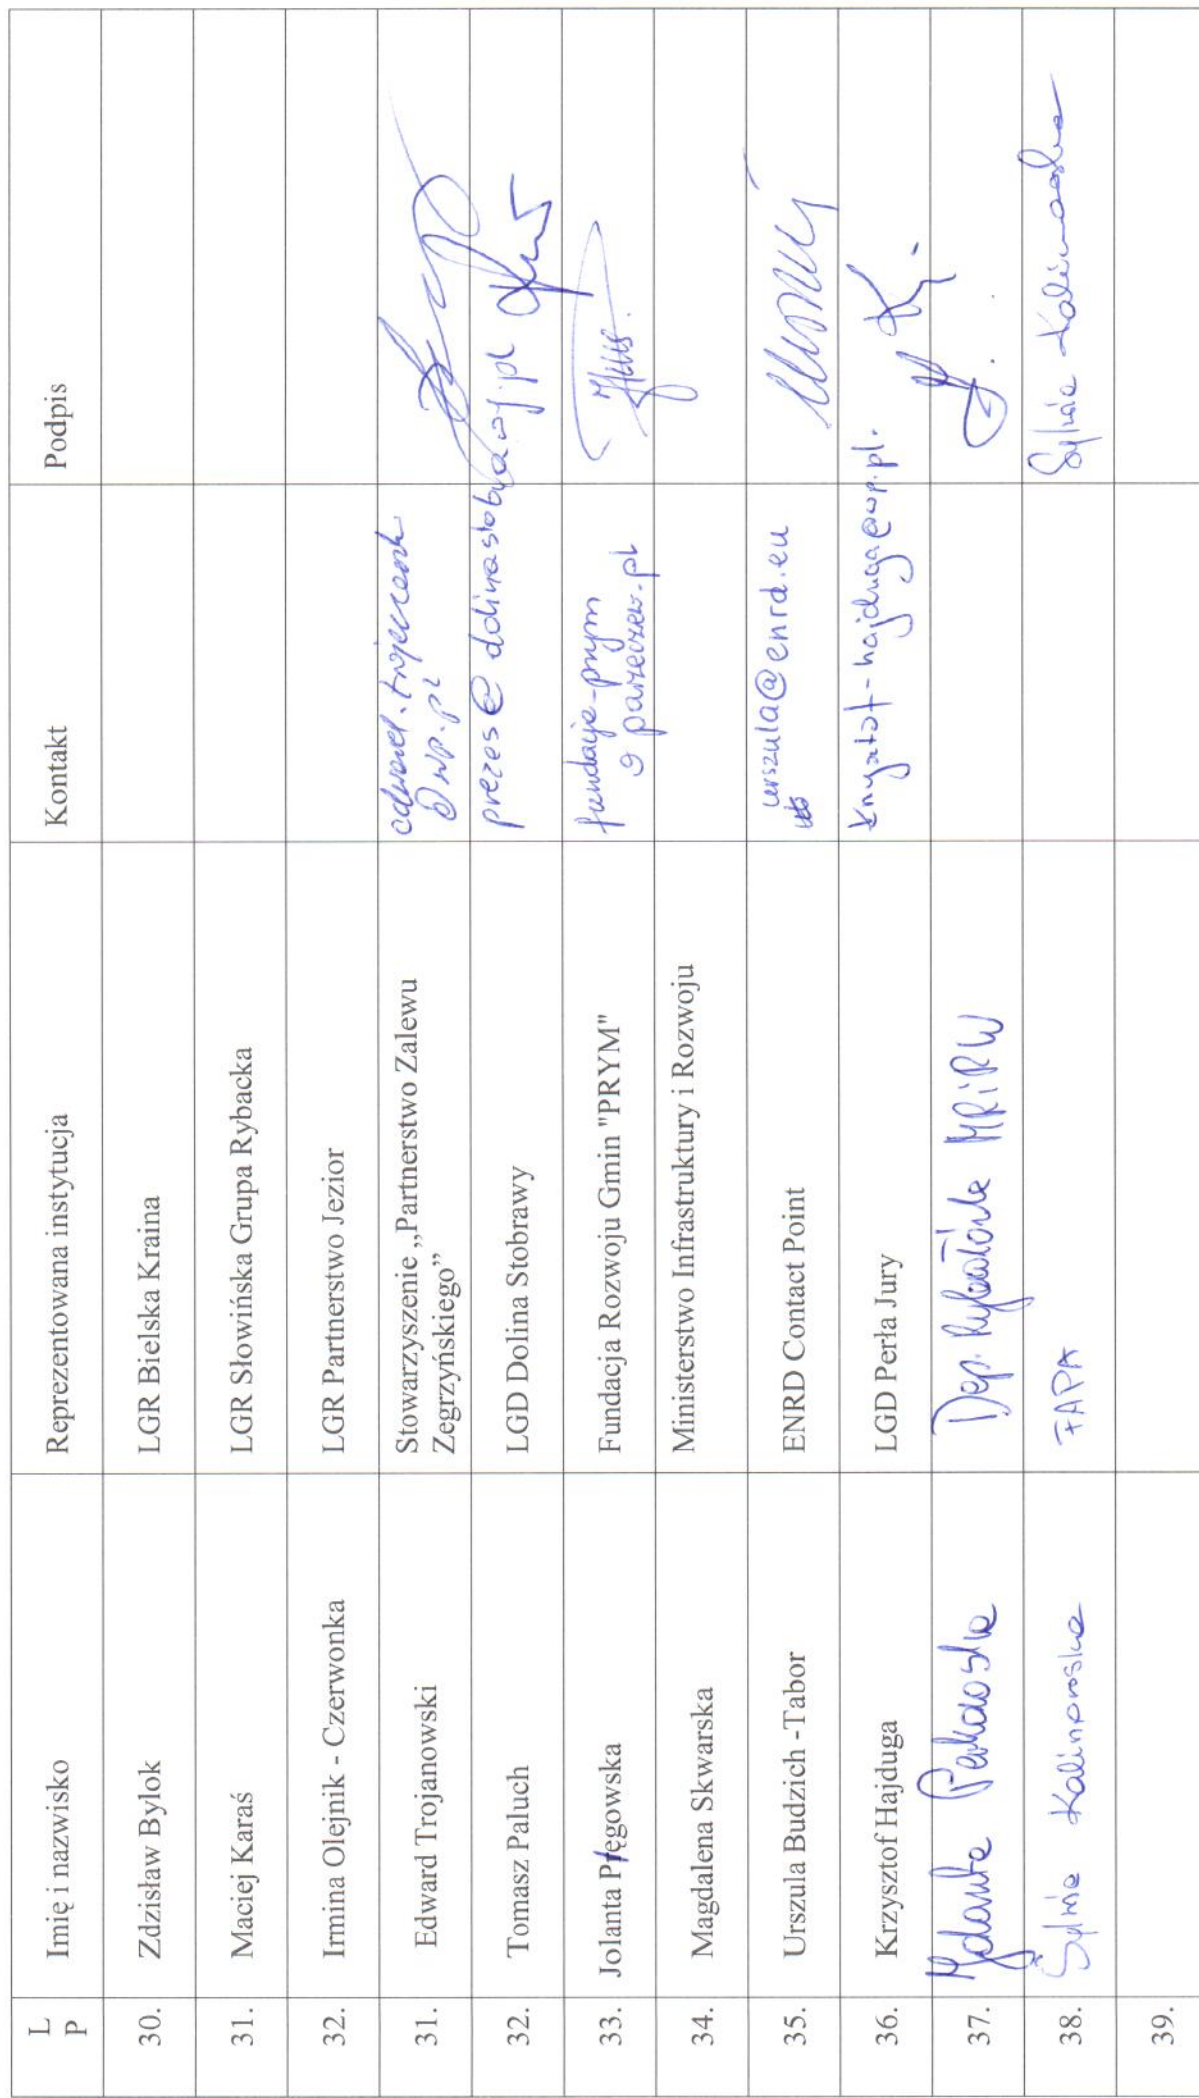 L P Imię i nazwisko Reprezentowana instytucja Kontakt Podpis
30. Zdzisław Bylok LGR Bielska Kraina
31. Maciej Karaś LGR Słowińska Grupa Rybacka
32. Irmina Olejnik - Czerwonka LGR Partnerstwo Jezior
31. Edward Trojanowski Stowarzyszenie „Partnerstwo Zalewu
Zegrzyńskiego” @wp.pl
32. Tomasz Paluch LGD Dolina Stobrawy prezes@dolinastobrawy.pl
33. Jolanta Pręgowska Fundacja Rozwoju Gmin "PRYM" fundacja-prym
@ parzeczew.pl
34. Magdalena Skwarska Ministerstwo Infrastruktury i Rozwoju
35. Urszula Budzich -Tabor ENRD Contact Point urszula@enrd.eu
36. Krzysztof Hajduga LGD Perła Jury krzysztof-hajduga@wp.pl.
37. Jolanta Perkowska Dep. Rybołówstwa MRiRW
38. Sylwia Kalinowska FAPA Sylwia Kalinowska
39.